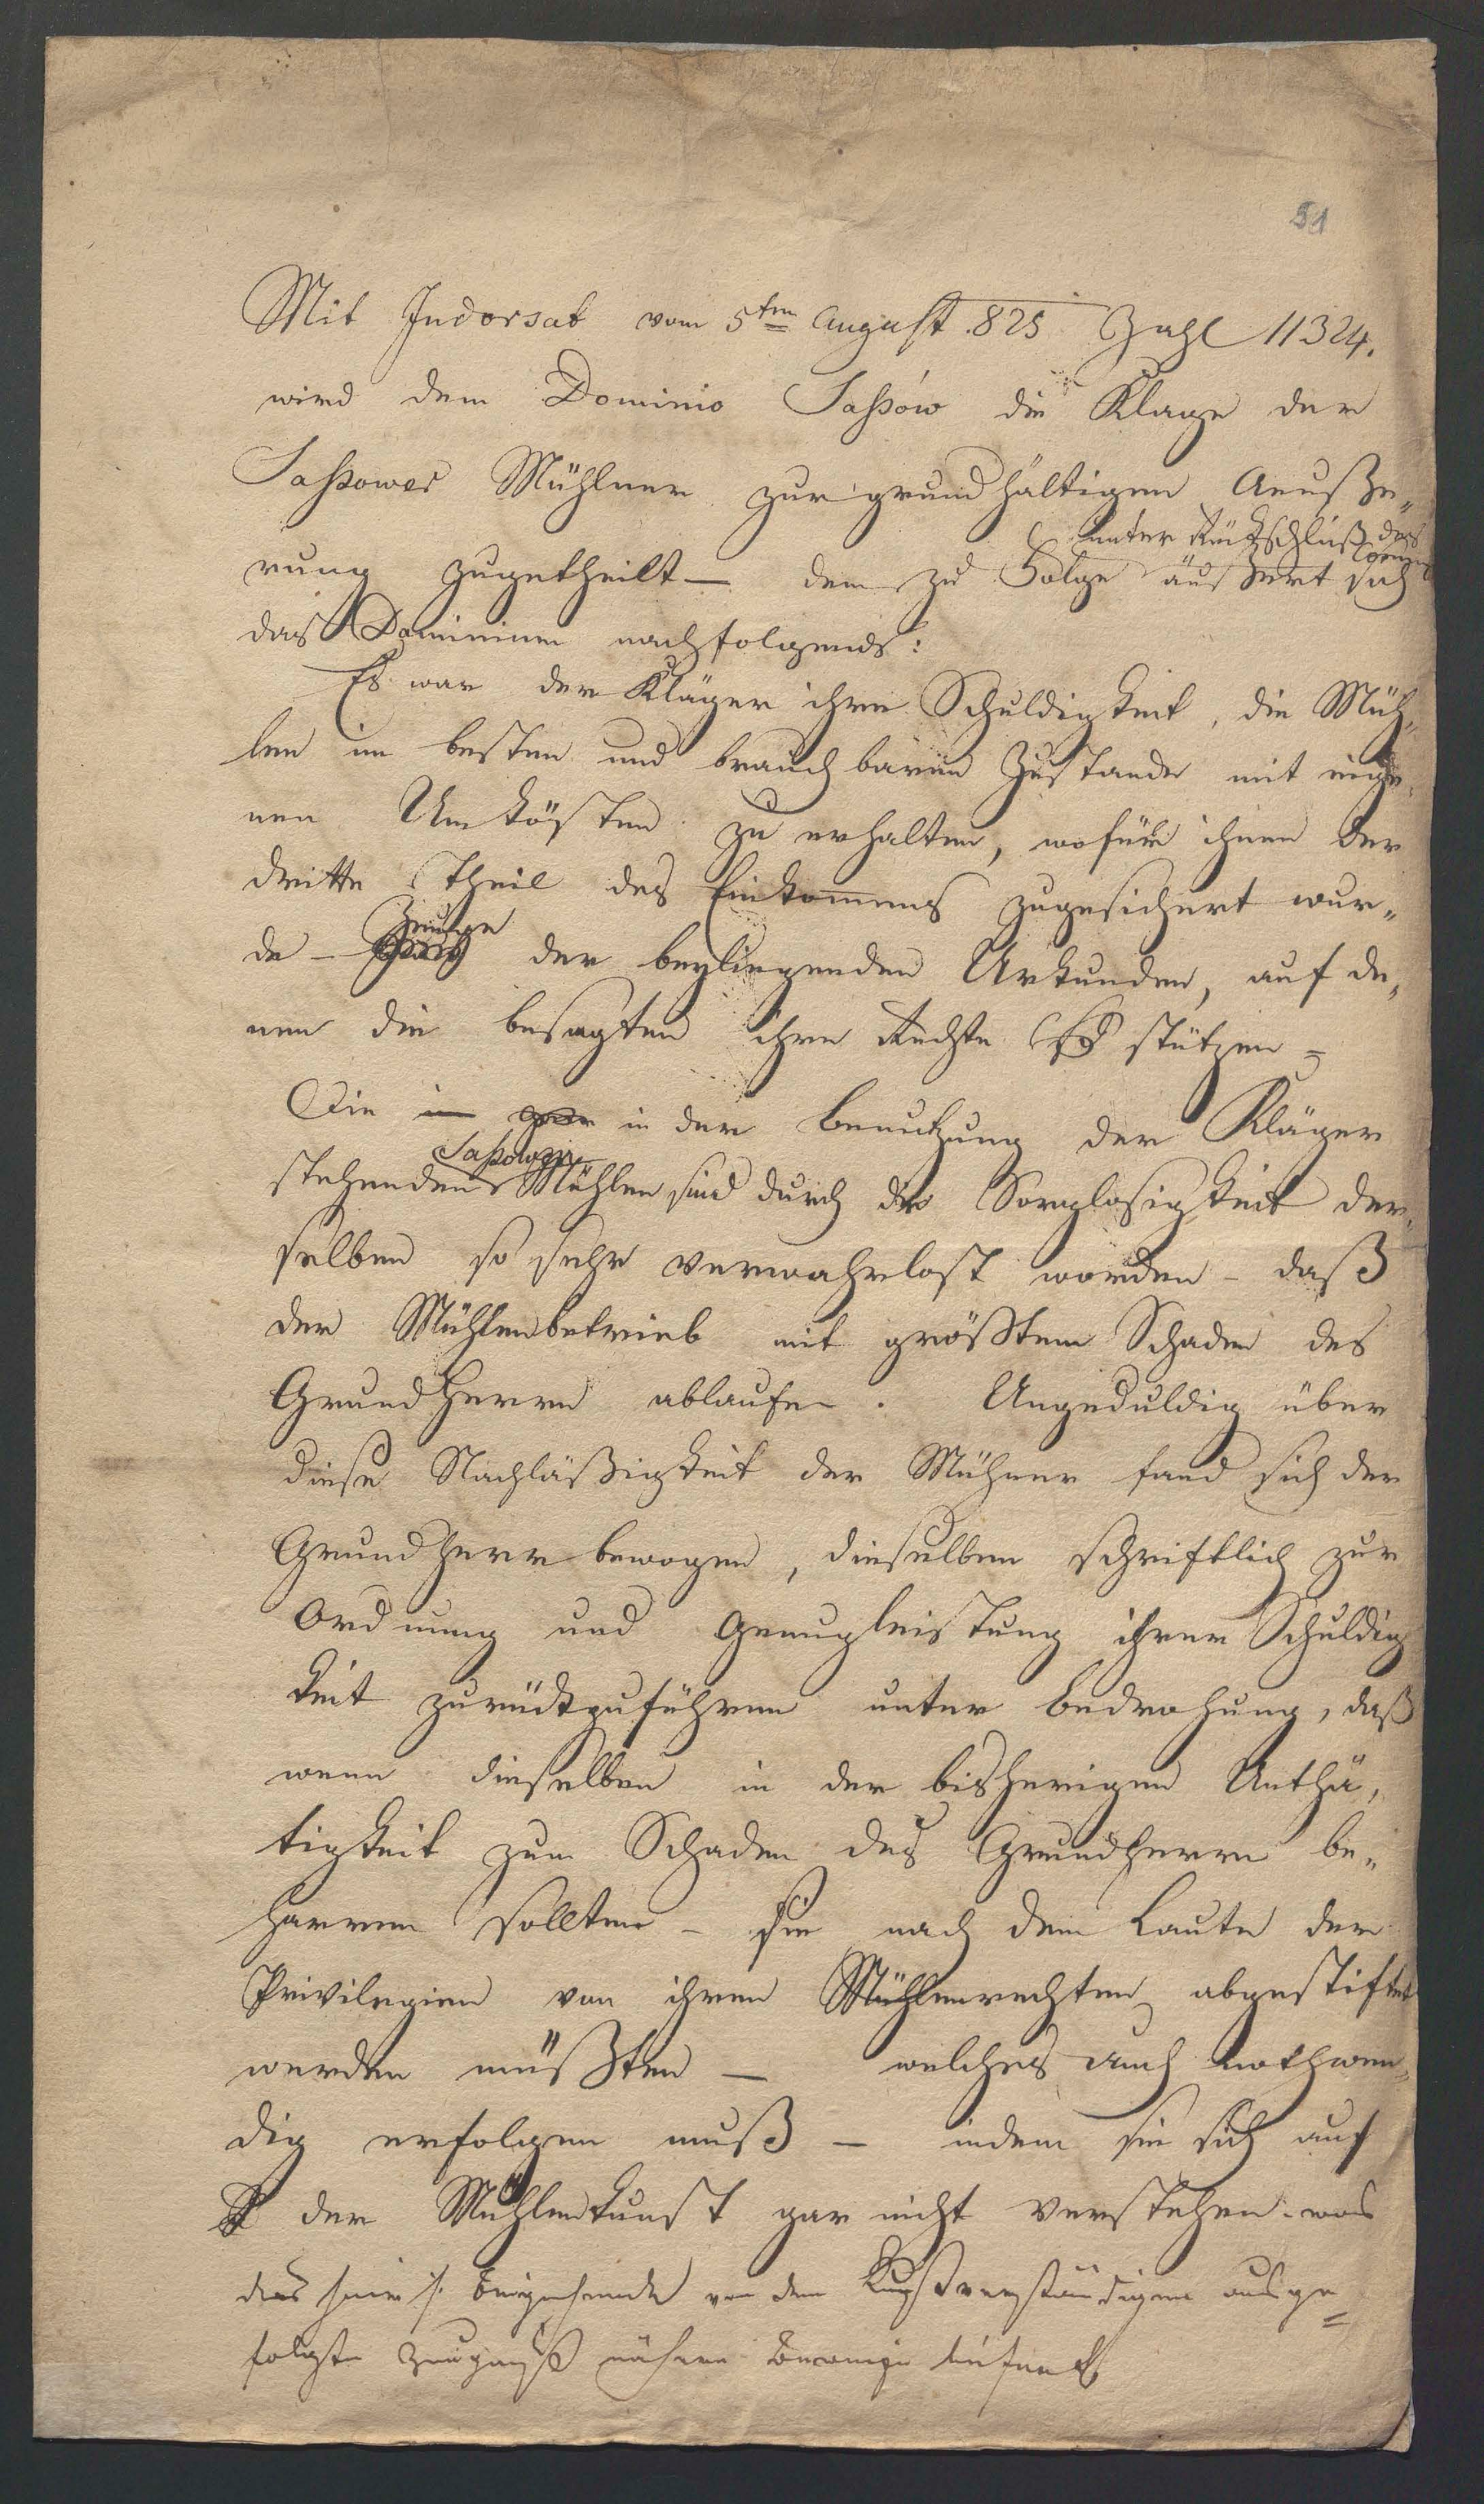 51
Mit Indorsat vom 5ten August 825 Zahl 11324.
wird dem Dominio Saßów die Klage der
Saßower Mühlner zur grundhältigen Aeuße„
unter Rückschluß des
rung zugetheilt — dem zu Folge äußert sich
das Dominium nachfolgends:
Es war der Kläger ihre Schuldigkeit, die Müh„
len im besten und brauchbaren Zustande mit eige„
nen Unkösten zu erhalten, wofür ihnen der
dritte Theil des Einkom̄ens zugesichert wur„
Zeuge
de – der beyliegenden Urkunden, auf de„
nen die besagten ihre Rechte stützen –
Die in der Benutzung der Kläger
stehenden Mühlen sind durch die Sorglosigkeit der„
selben so sehr verwahrlost worden – daß
der Mühlenbetrieb mit größtem Schaden des
Grundherrn ablaufe. Ungeduldig über
diese Nachläßigkeit der Mühner fand sich der
Grundherr bewogen, dieselben schriftlich zur
Ordnung und Genugleistung ihrer Schuldig
keit zurückzuführen unter Bedrohung, daß
wenn dieselben in der bisherigen Unthä„
tigkeit zum Schaden des Grundherrn be„
harren sollten – sie nach dem Laute der
Privilegien von ihren Mühlenrechten abgestiftet
werden müßten — welches auch nothwen„
dig erfolgen muß — indem sie sich auf
der Mühlenkunst gar nicht verstehen – was
das von den Kunstverständigen ausge
folgte Zeugniß nähere Beweise liefert